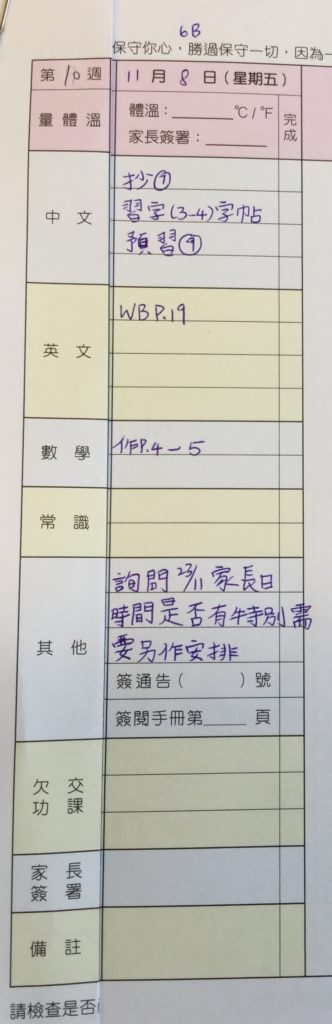 6B
保守你心，勝過保守一切，因為一
第10週 11月8日(星期五)
量體溫 體溫：______℃/℉ 完成
家長簽署：______
中文 抄⑨
習字(3-4)字帖
預習⑨
英文 WB P.19
數學 作P.4-5
常識
其他 詢問23/11家長日
時間是否有特別需
要另作安排
簽通告( )號
簽閱手冊第_____頁
欠交功課
家長簽署
備註
請檢查是否